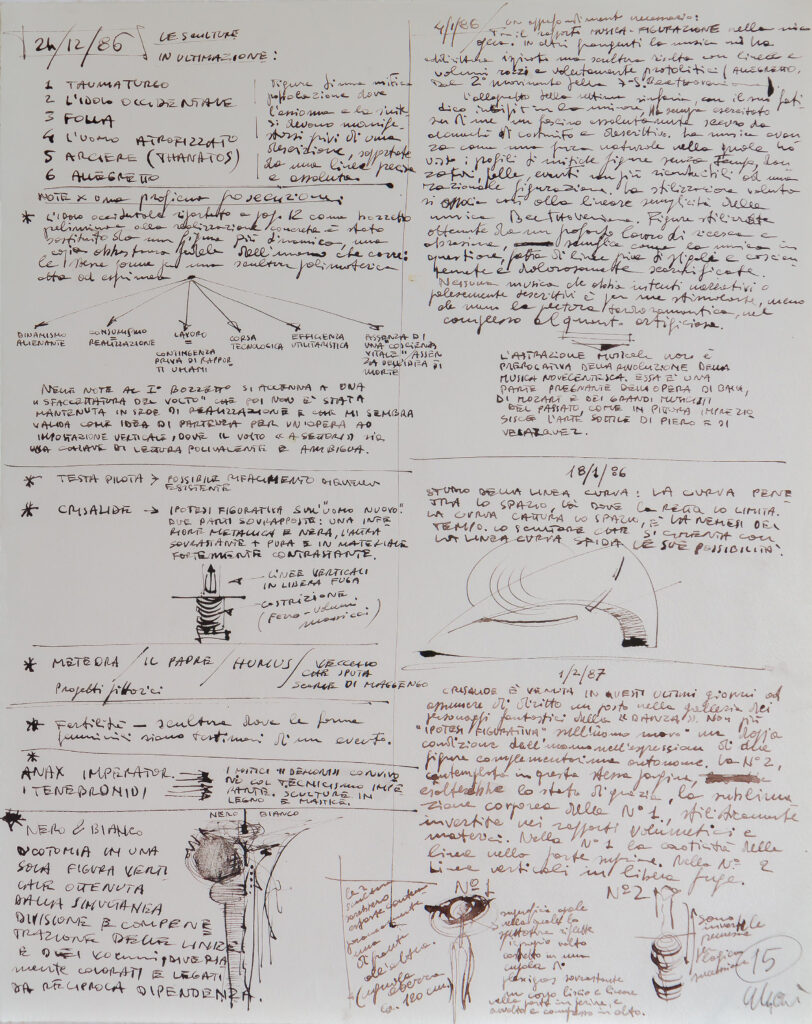 24/12/86 LE SCULTURE
IN ULTIMAZIONE:
1 TAUMATURGO
2 L'IDOLO OCCIDENTALE
3 FOLLA
4 L'UOMO ATROFIZZATO
5 ARCIERE (THANATOS)
6 ALLEGRETTO
Figure di una mitica
popolazione dove
l'assioma e la
si devono manife
starsi privi di ogni
descrizione, supportate
da una linea precisa
e assoluta.
NOTE X una proficua prosecuzione
* L'idolo occidentale riportato a pag. 12 come bozzetto
preliminare alla realizzazione concreta è stato
sostituito da una figura più dinamica, una
copia abbastanza fedele dell'uomo che corre:
le forme per una scultura polimaterica
atta ad esprimere
DINAMISMO
ALIENANTE
CONSUMISMO
REALIZZAZIONE
LAVORO
CONTINGENZA
PRIVA DI RAPPOR
TI UMANI
CORSA
TECNOLOGICA
EFFICIENZA
UTILITARISTICA
ASSENZA DI
UNA "COSCIENZA
VITALE" ASSEN
ZA DELL'IDEA DI
MORTE
NELLE NOTE AL I° BOZZETTO SI ACCENNA A UNA
"SFACCETTATURA DEL VOLTO" CHE POI NON È STATA
MANTENUTA IN SEDE DI REALIZZAZIONE E CHE MI SEMBRA
VALIDA COME IDEA DI PARTENZA PER UN'OPERA AD
IMPOSTAZIONE VERTICALE, DOVE IL VOLTO "A SETTORI" SIA
UNA CHIAVE DI LETTURA POLIVALENTE E AMBIGUA.
* TESTA PILOTA > POSSIBILE RIFACIMENTO DI QUELLA
ESISTENTE
* CRISALIDE → IPOTESI FIGURATIVA SULL'"UOMO NUOVO".
DUE PARTI SOVRAPPOSTE: UNA INFE
RIORE METALLICA E NERA, L'ALTRA
SOVRASTANTE + PURA E IN MATERIALE
FORTEMENTE CONTRASTANTE.
LINEE VERTICALI
IN LIBERA FUGA
COSTRIZIONE
(Ferro - volumi
massicci)
* METEORA / IL PADRE / HUMUS / VECCHIO
CHE SPUTA
SCORIE DI MAGGENGO
Progetti pittorici
* Fertilità — scultura dove le forme
femminili siano testimoni di un evento.
*
ANAX IMPERATOR
I TENEBRONIDI
I MITICI "DEMONI" CONVIVO
NO COL TECNICISMO IMPE
RANTE. SCULTURE IN
LEGNO E MASTICE.
* NERO & BIANCO
DICOTOMIA IN UNA
SOLA FIGURA VERTI
CALE OTTENUTA
DALLA SIMULTANEA
DIVISIONE E COMPENE
TRAZIONE DELLE LINEE
E DEI VOLUMI, DIVERSA
MENTE COLORATI E LEGATI
DA RECIPROCA DIPENDENZA.
NERO BIANCO
4/1/86 un approfondimento necessario:
Tra il rapporto MUSICA-FIGURAZIONE nella mia
opera. In altri frangenti la musica mi ha
addirittura ispirato una scultura risolta con linee e
volumi rozzi e volutamente protolitici (ALLEGRETTO,
dal 2° movimento della 7a S. Beethoveniana)
L'allegretto della settima sinfonia con il suo
ha sempre esercitato
su di me un fascino assolutamente scevro da
elementi di costrutto e descrittivi. La musica avan
za come una forza naturale nella quale ho
visto i profili di mitiche figure senza tempo, dan
zatori, folle, eventi non più riconducibili ad una
razionale figurazione. La stilizzazione voluta
si associa così alla lineare semplicità della
musica Beethoveniana. Figure stilizzate
ottenute da un profondo lavoro di ricerca e
semplice come la musica in
questione, fatta di linee prive di e coscien
temente e dolorosamente scarnificate.
Nessuna musica che abbia intenti narrativi o
palesemente descrittivi è per me stimolante, meno
che meno la pittura tardoromantica, nel
complesso alquanto artificiosa.
L'ASTRAZIONE MUSICALE NON È
PREROGATIVA DELLA RIVOLUZIONE DELLA
MUSICA NOVECENTESCA. ESSA È UNA
PARTE PREGNANTE DELL'OPERA DI BACH,
DI MOZART E DEI GRANDI MUSICISTI
DEL PASSATO, COME IN PITTURA IMPREZIO
SISCE L'ARTE SOTTILE DI PIERO E DI
VELAZQUEZ.
18/1/86
STUDIO DELLA LINEA CURVA: LA CURVA PENE
TRA LO SPAZIO, LÀ DOVE LA RETTA LO LIMITA.
LA CURVA CATTURA LO SPAZIO, È LA NEMESI DEL
TEMPO. LO SCULTORE CHE SI CIMENTA CON
LA LINEA CURVA SFIDA LE SUE POSSIBILITÀ.
1/2/87
CRISALIDE È VENUTA IN QUESTI ULTIMI GIORNI AD
assumere di diritto un posto nella galleria dei
personaggi fantastici della "DANZA". Non più
"IPOTESI FIGURATIVA" sull'uomo nuovo ma doppia
condizione dell'uomo nell'espressione di due
figure complementari ma autonome. La N° 2,
contemplata in questa stessa pagina,
esalterebbe lo stato di grazia, la sublima
zione corporea della N° 1, stilisticamente
invertita nei rapporti volumetrici e
materici. Nella N° 1 la caoticità delle
linee nella parte superiore. Nella N° 2
linee verticali in libera fuga.
Le 2
sculture
sarebbero
esposte contem
poraneamente
una
di fronte
all'altra.
(cupola
ca. 120 cm)
N° 1
superficie ovale
nella quale lo
spettatore riflette
il proprio volto
in una
cupola di
plexiglas sovrastante
un corpo liscio e lineare
nella parte inferiore, e
e complesso in alto.
N° 2
sono
invertite le
premesse
15